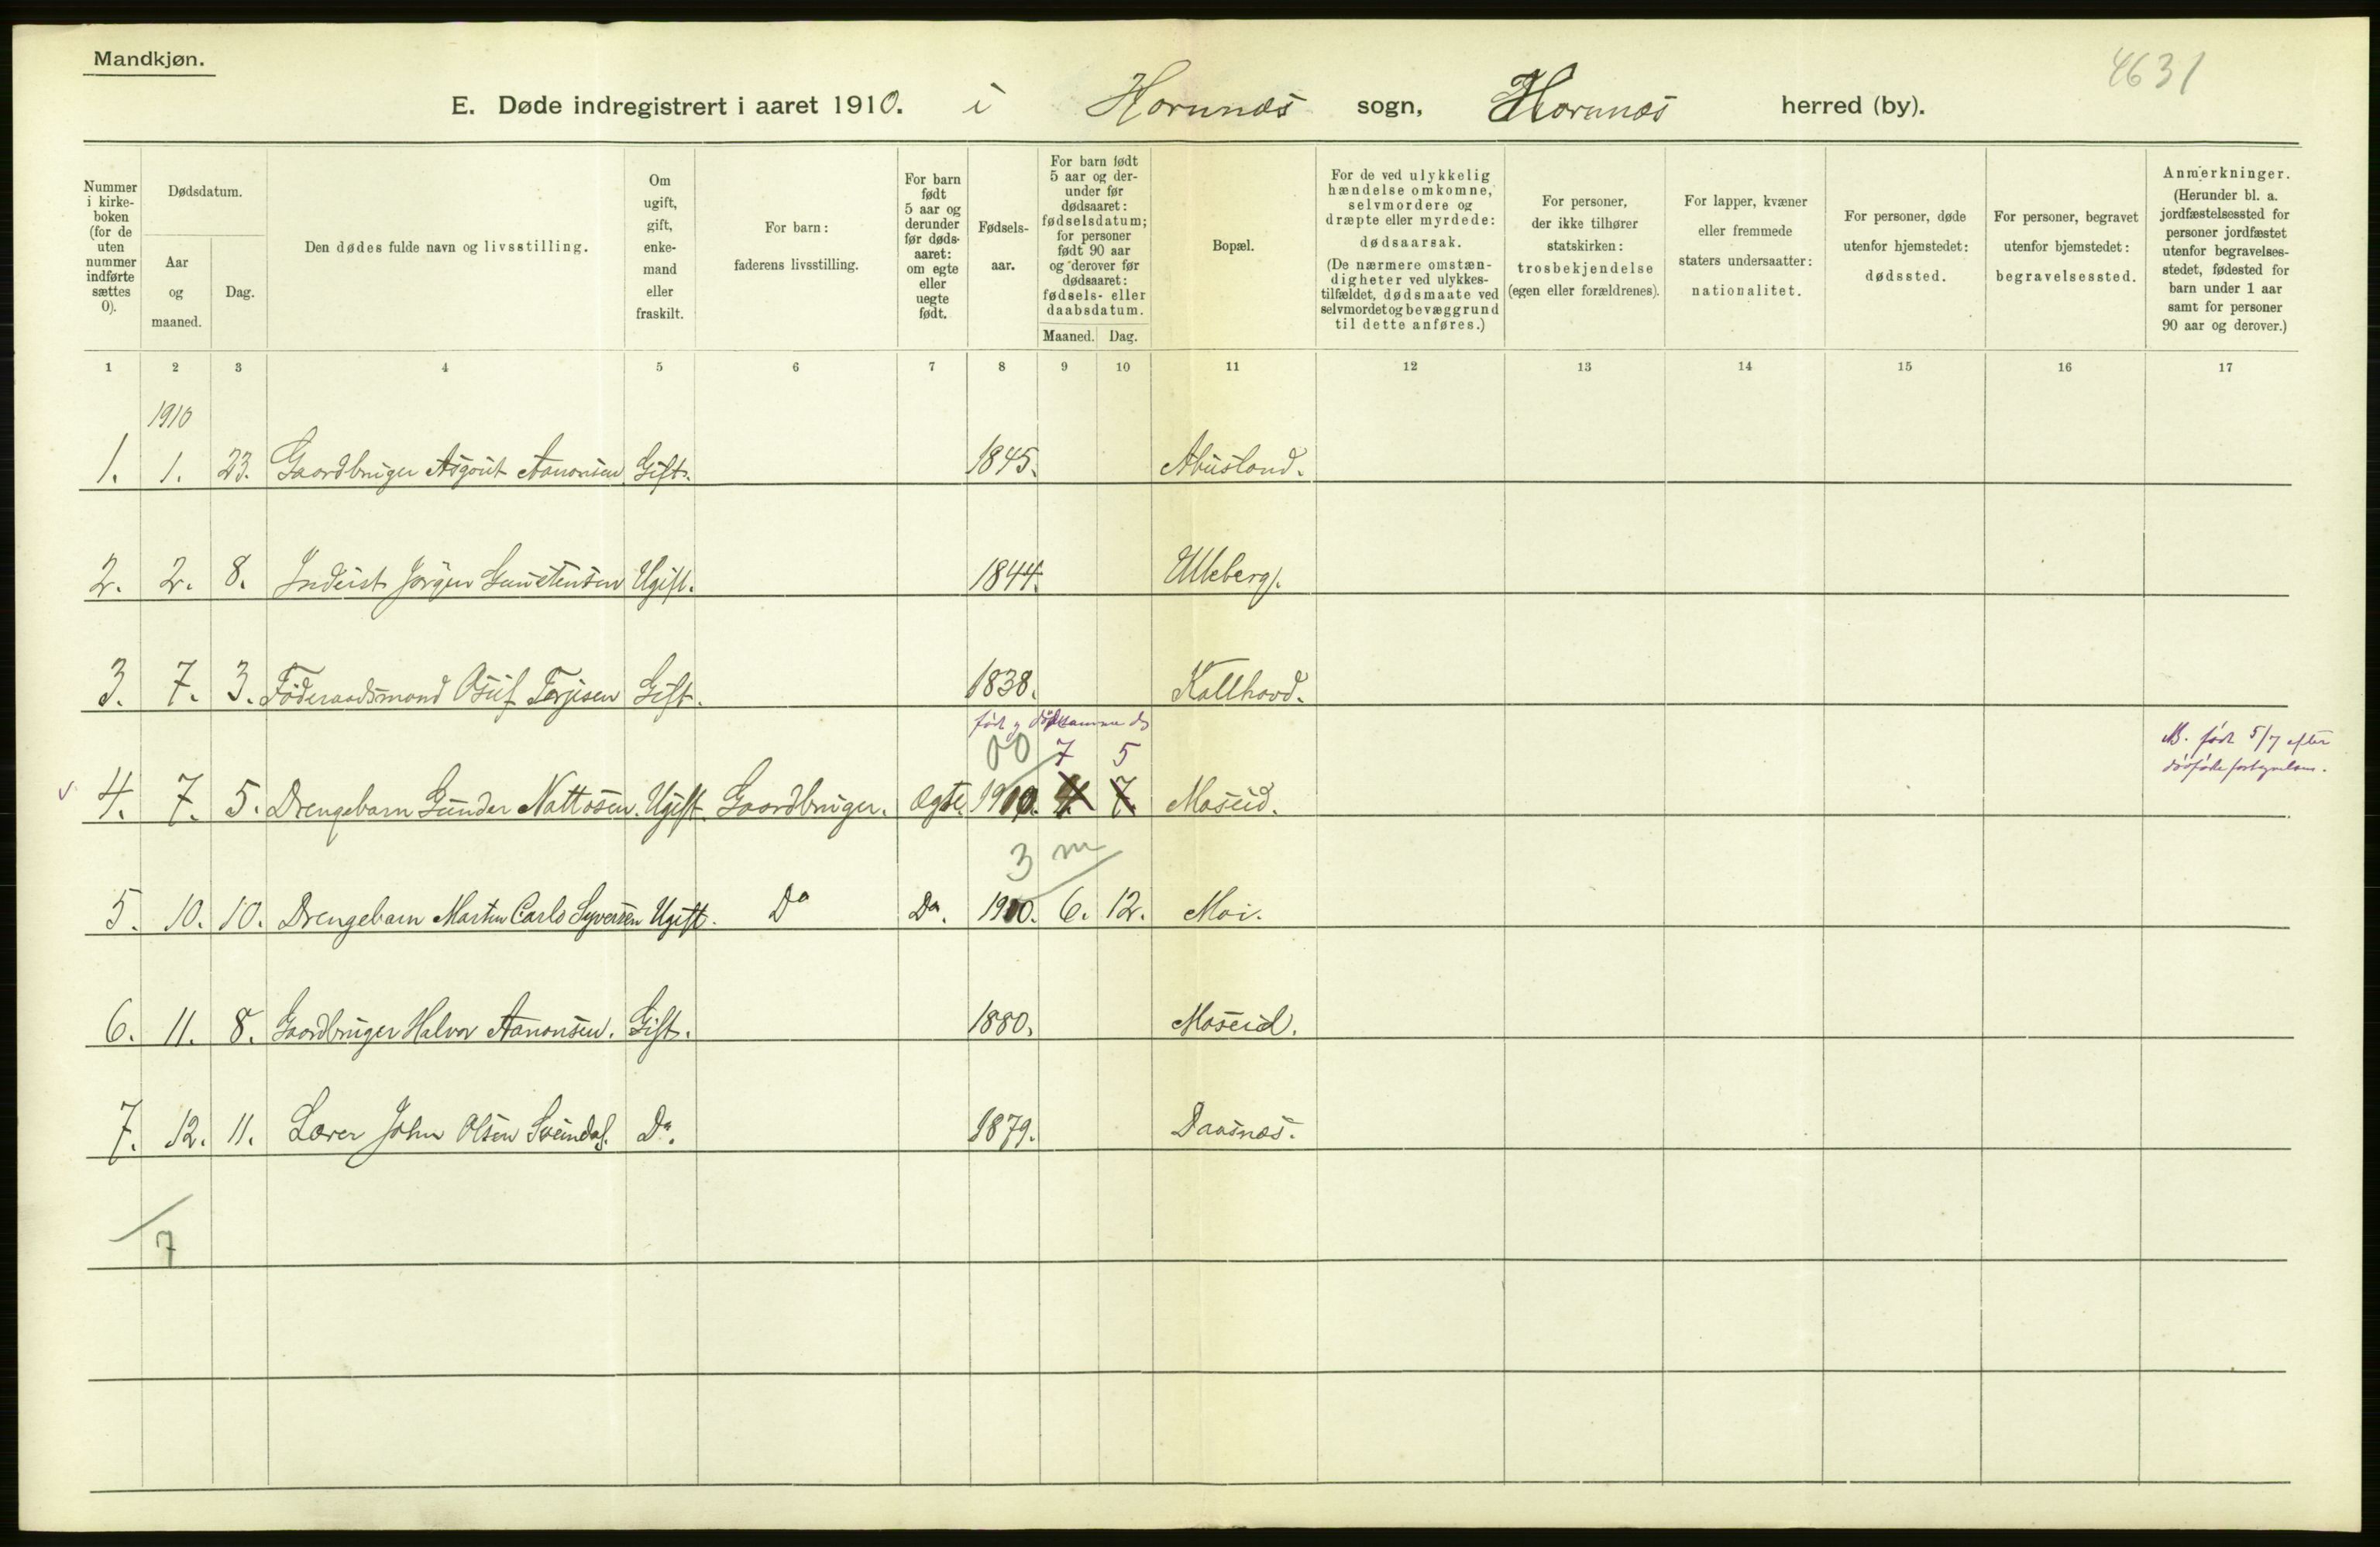 Mandkjøn.
4631
E. Døde indregistrert i aaret 1910. i Hornnes sogn, Hornnes herred (by).
Nummer i kirkeboken (for de uten nummer indførte sættes 0).
Dødsdatum.
Aar og maaned.
Dag.
Den dødes fulde navn og livsstilling.
Om ugift, gift, enkemand eller fraskilt.
For barn: faderens livsstilling.
For barn født 5 aar og derunder før dødsaaret: om egte eller uegte født.
Fødselsaar.
For barn født 5 aar og derunder før dødsaaret: fødselsdatum; for personer født 90 aar og derover før dødsaaret: fødsels- eller daabsdatum.
Maaned. Dag.
Bopæl.
For de ved ulykkelig hændelse omkomne, selvmordere og dræpte eller myrdede: dødsaarsak. (De nærmere omstændigheter ved ulykkestilfældet, dødsmaate ved selvmordet og bevæggrund til dette anføres.)
For personer, der ikke tilhører statskirken: trosbekjendelse (egen eller forældrenes).
For lapper, kvæner eller fremmede staters undersaatter: nationalitet.
For personer, døde utenfor hjemstedet: dødssted.
For personer, begravet utenfor hjemstedet: begravelsessted.
Anmerkninger. (Herunder bl. a. jordfæstelsessted for personer jordfæstet utenfor begravelsesstedet, fødested for barn under 1 aar samt for personer 90 aar og derover.)
1 2 3 4 5 6 7 8 9 10 11 12 13 14 15 16 17
1910
1. 1. 23. Gaardbruger Asgout Aanonsen Gift. 1845. Abusland.
2. 2. 8. Inderst Jørgen Gunstensen Ugift. 1844. Uleberg.
3. 7. 3. Føderaadsmand Osuf Terjesen Gift. 1838. Kallhovd.
født og død samme dag
00 7 5
M. født 5/7 efter
4. 7. 5. Drengebarn Gunder Nattosen. Ugift. Gaardbruger. Ægte. 1910. 4. 7. Moseid.
3 m
5. 10. 10. Drengebarn Martin Carlo Syversen Ugift. Do Do. 1910. 6. 12. Moi.
6. 11. 8. Gaardbruger Halvor Aanonsen. Gift. 1880. Moseid.
7. 12. 11. Lærer John Olsen Sveindal. Do. 1879. Daasnes.
7